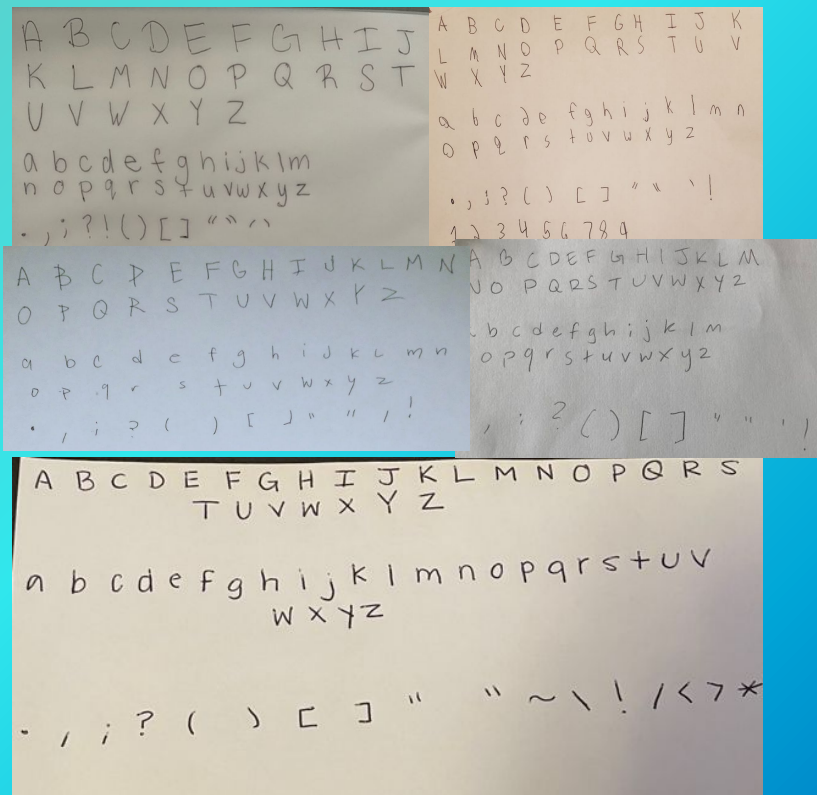 A B C D E F G H I J
K L M N O P Q R S T
U V W X Y Z
a b c d e f g h i j k l m
n o p q r s t u v w x y z
. , ; ? ! ( ) [ ] “ ” ‘ ’
A B C D E F G H I J K
L M N O P Q R S T U V
W X Y Z
a b c d e f g h i j k l m n
o p q r s t u v w x y z
. , ; ? ( ) [ ] " " ' !
1 2 3 4 5 6 7 8 9
A B C D E F G H I J K L M N
O P Q R S T U V W X Y Z
a b c d e f g h i j k l m n
o p q r s t u v w x y z
. , ; ? ( ) [ ] " " / !
A B C D E F G H I J K L M
N O P Q R S T U V W X Y Z
b c d e f g h i j k l m
o p q r s t u v w x y z
, ; ? ( ) [ ] " " ' !
A B C D E F G H I J K L M N O P Q R S
T U V W X Y Z
a b c d e f g h i j k l m n o p q r s t u v
w x y z
. , ; ? ( ) [ ] " " ~ \ ! / < > *